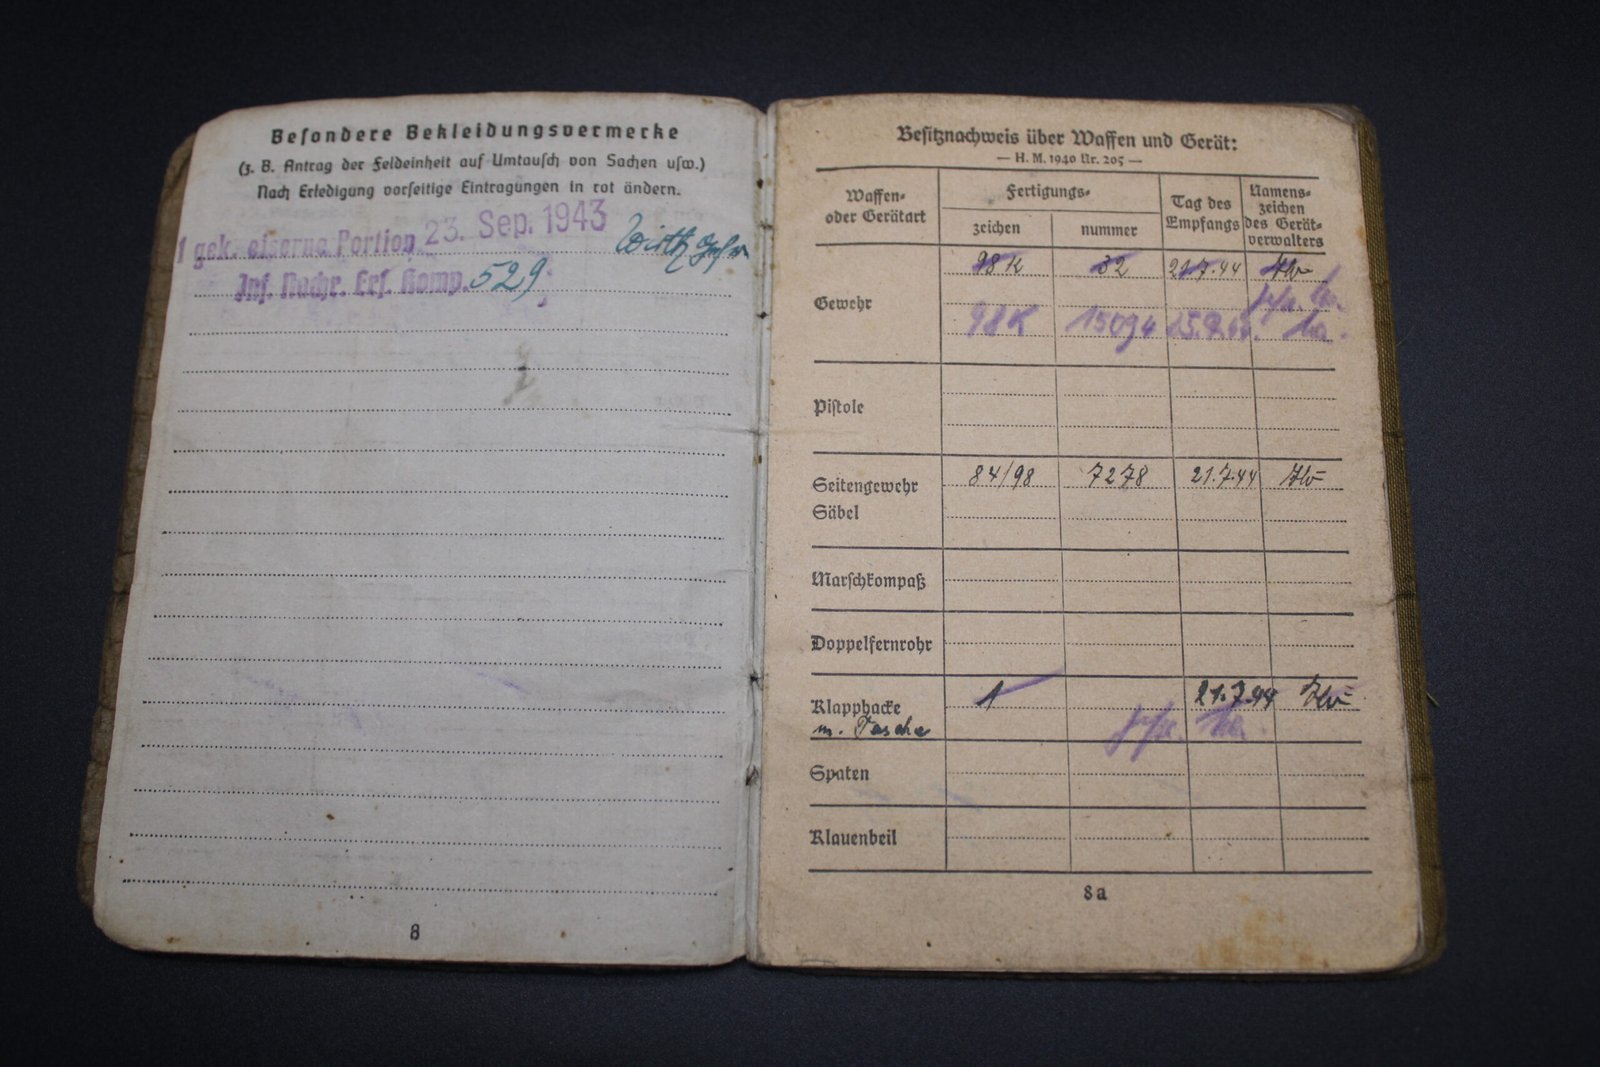 Besondere Bekleidungsvermerke
(z. B. Antrag der Feldeinheit auf Umtausch von Sachen usw.)
Nach Erledigung vorseitige Eintragungen in rot ändern.
1 gek. eiserne Portion 23. Sep. 1943
Inf. Nachr. Ers. Komp. 529
8
Besitznachweis über Waffen und Gerät:
— H. M. 1940 Nr. 205 —
Waffen- oder Gerätart
Fertigungs-
zeichen
nummer
Tag des Empfangs
Namens- zeichen des Gerät- verwalters
Gewehr
98 K 32 21.7.44
98 K 15094
Pistole
Seitengewehr 84/98 7278 21.7.44
Säbel
Marschkompaß
Doppelfernrohr
Klapphacke 1 21.7.44
m. Tasche
Spaten
Klauenbeil
8a